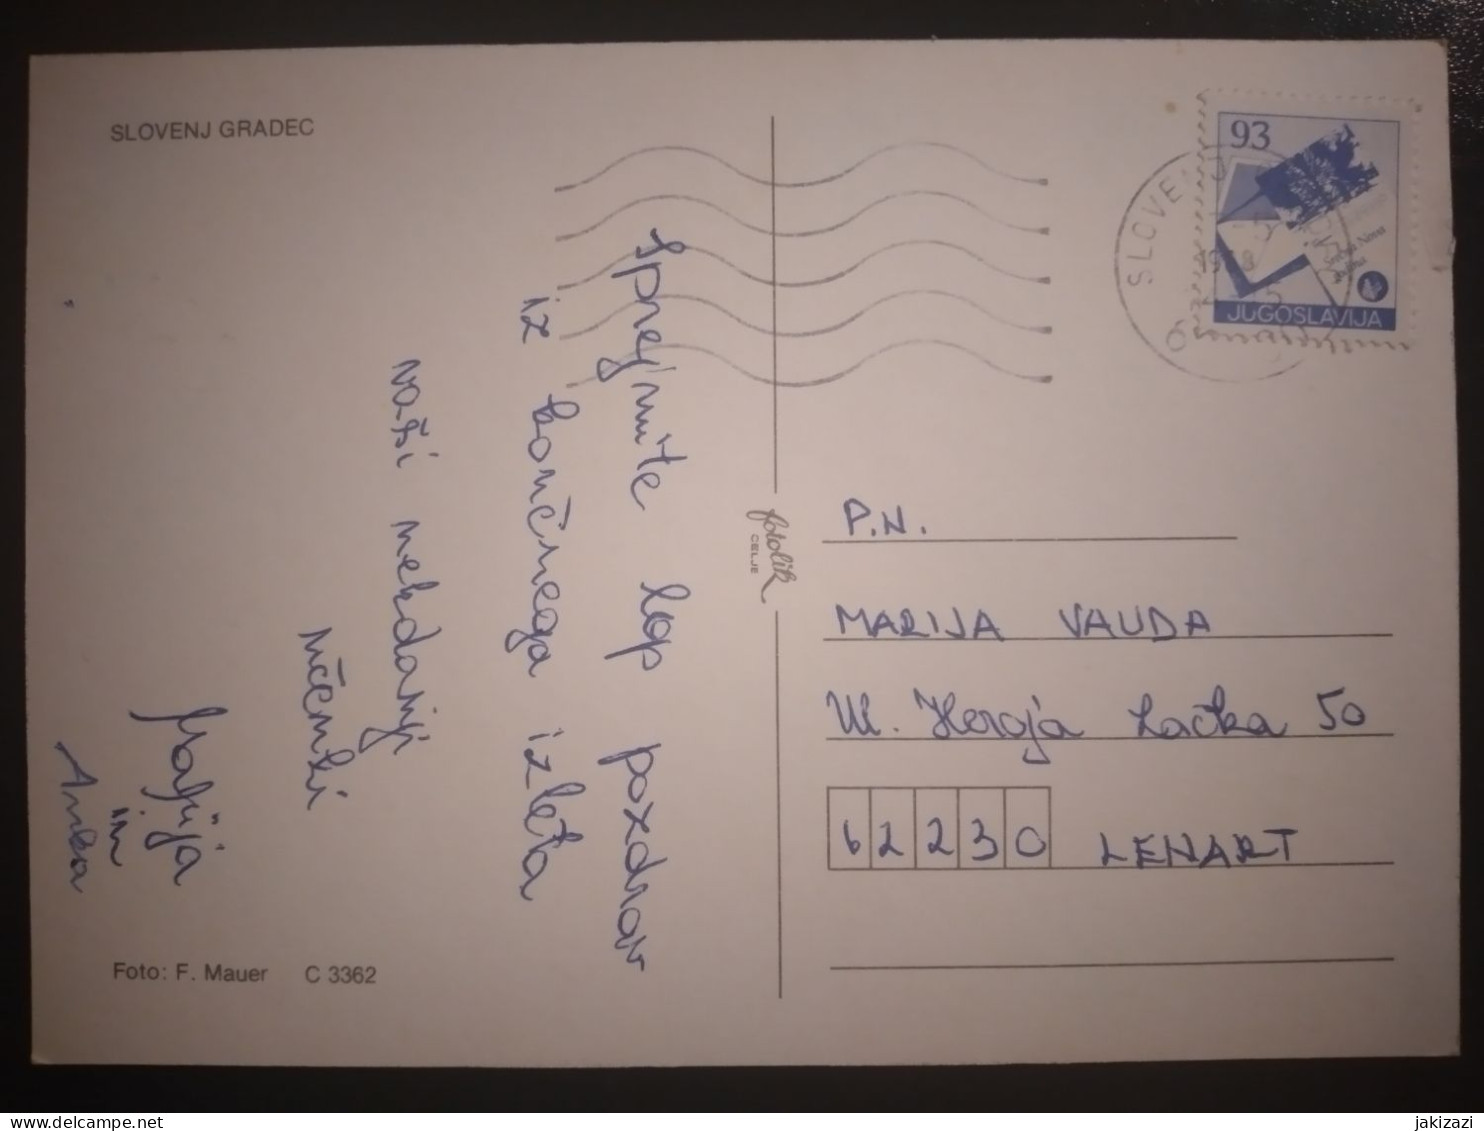 SLOVENJ GRADEC
93
JUGOSLAVIJA
SLOVENJ
Sprejmite lep pozdrav
iz končnega izleta
vaši nekdanji
učenki
Marija
in
Anka
fotolik
CELJE
P.N.
MARIJA VAUDA
Ul. Heroja Lačka 50
62230 LENART
Foto: F. Mauer C 3362
www.delcampe.net
jakizazi